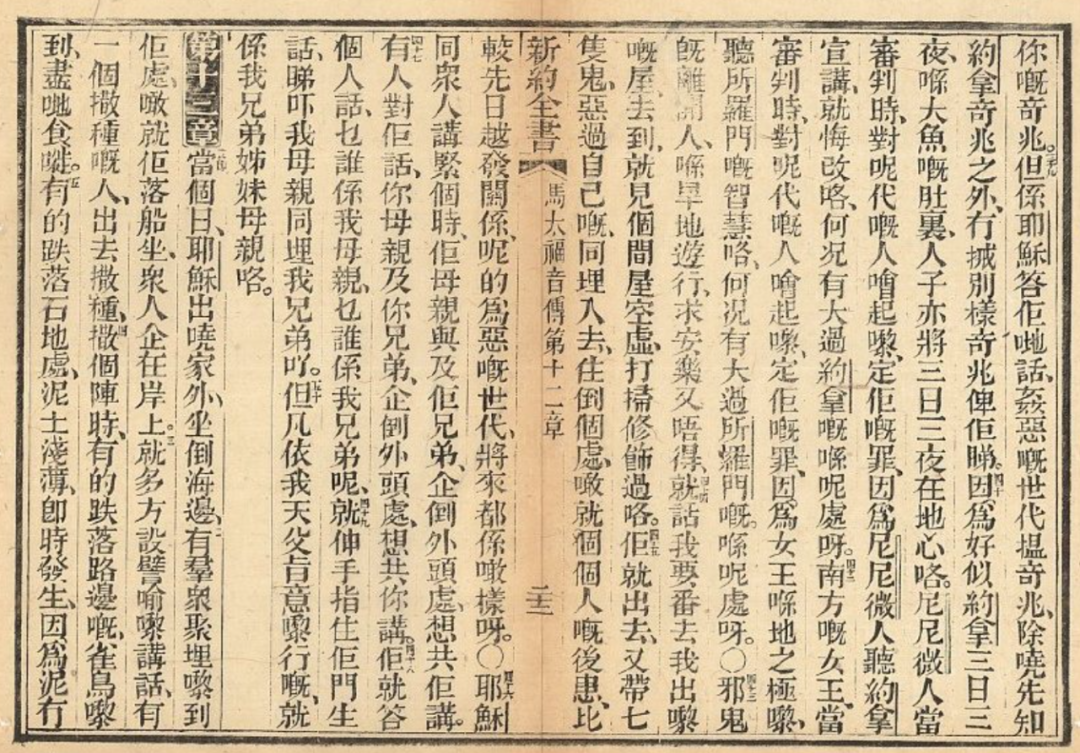 你嘅奇兆。三九但係耶穌答佢哋話、姦惡嘅世代搵奇兆、除嘵先知
約拿奇兆之外、冇𢫏別樣奇兆俾佢睇。四十因爲好似約拿三日三
夜、喺大魚嘅肚裏、人子亦將三日三夜在地心咯。尼尼微人當
審判時、對呢代嘅人噲起嚟、定佢嘅罪、因爲尼尼微人聽約拿
宣講、就悔改咯、何况有大過約拿嘅喺呢處呀。四二南方嘅女王、當
審判時、對呢代嘅人噲起嚟、定佢嘅罪、因爲女王喺地之極嚟、
聽所羅門嘅智慧咯、何况有大過所羅門嘅。喺呢處呀。〇四三邪鬼
旣離開人、喺旱地遊行、求安樂又唔得、四四就話我要番去我出嚟
嘅屋、去到、就見個間屋空虛、打掃修飾過咯。四五佢就出去、又帶七
隻鬼、惡過自己嘅、同埋入去、住倒個處、噉就個個人嘅後患、比
新約全書 馬太福音傳第十二章 二三
較先日越發關係、呢的爲惡嘅世代、將來都係噉樣呀。〇四六耶穌
同衆人講緊個時、佢母親與及佢兄弟、企倒外頭處、想共佢講。
四七有人對佢話、你母親及你兄弟、企倒外頭處、想共你講。四八佢就答
個人話、乜誰係我母親、乜誰係我兄弟呢、四九就伸手指住佢門生
話、睇吓我母親同埋我兄弟吖。五十但凡依我天父旨意嚟行嘅、就
係我兄弟姊妹母親咯。
第十三章一當個日、耶穌出嘵家外、坐倒海邊、二有羣衆聚埋嚟到
佢處、噉就佢落船坐、衆人企在岸上。三就多方設譬喻嚟講話、有
一個撒種嘅人、出去撒種、四撒個陣時、有的跌落路邊嘅、雀鳥嚟
到、盡哋食嘥。五有的跌落石地處、泥土淺薄、卽時發生、因爲泥冇